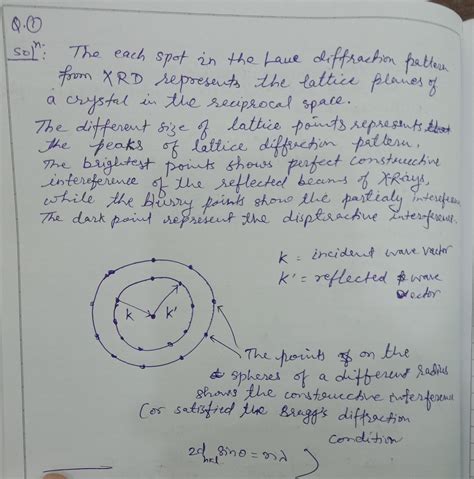 Q.①
Solⁿ: The each spot in the Laue diffraction pattern
from XRD represents the lattice planes of
a crystal in the reciprocal space.
The different size of lattice points represents that
the peaks of lattice diffraction pattern.
The brightest points shows perfect constructive
intereference of the reflected beams of XRays,
while the blurry points show the partialy
The dark point represent the disptractive interference.
k = incident wave vector
k' = reflected wave
vector
k k'
The points on the
spheres of a different radius
shows the construcctive interference
(or satisfied the Bragg's diffraction
condition
2d_hkl sinθ = nλ )